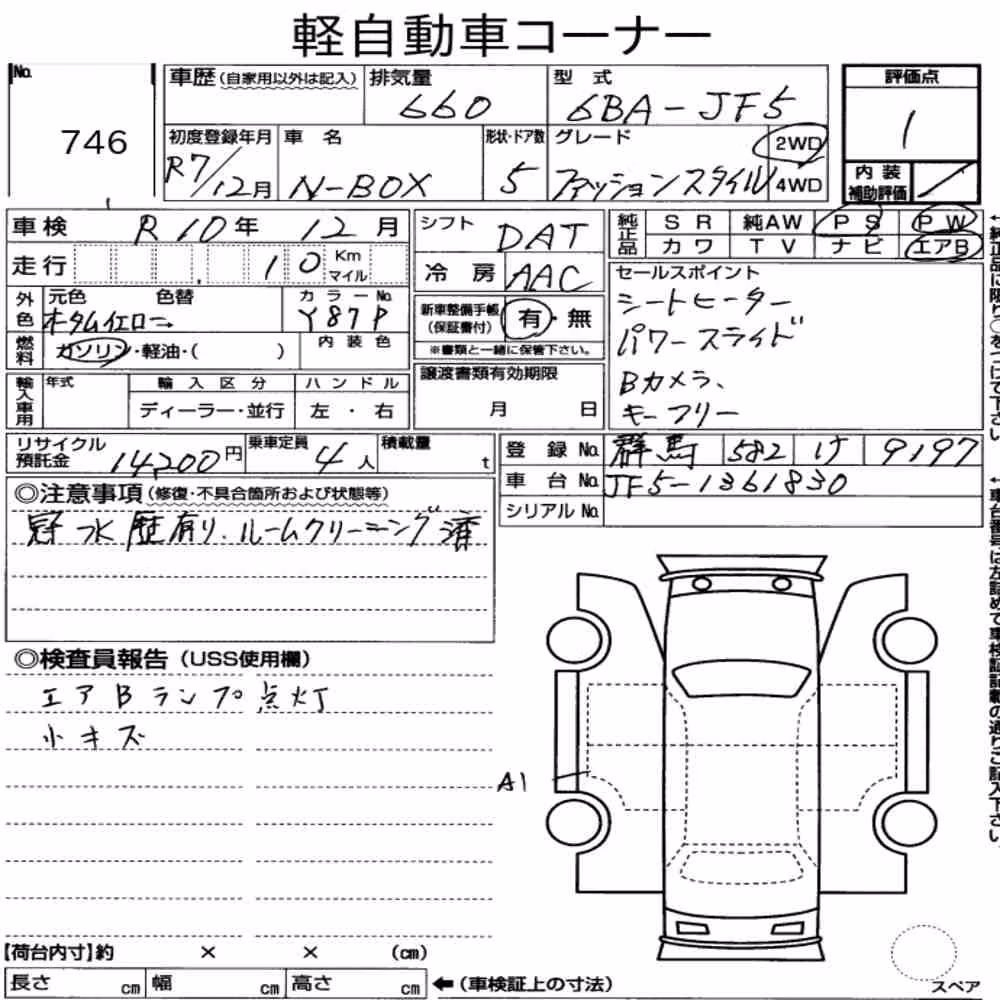 軽自動車コーナー
No. 746
車歴(自家用以外は記入) 排気量 660 型式 6BA-JF5 評価点 1
初度登録年月 R7/12月 車名 N-BOX 形状・ドア数 5 グレード ファッションスタイル 2WD 4WD
内装補助評価 /
車検 R10年 12月 シフト DAT 純正品 SR 純AW PS PW
走行 10 Km マイル 冷房 AAC カワ TV ナビ エアB
外色 元色 色替 オータムイエロー カラーNo. Y87P
新車整備手帳(保証書付) 有・無
※書類と一緒に保管下さい。
燃料 ガソリン・軽油・( ) 内装色
セールスポイント
シートヒーター
パワースライド
Bカメラ、
キーフリー
輸入車用 年式 輸入区分 ハンドル
ディーラー・並行 左・右
譲渡書類有効期限
月 日
リサイクル預託金 14200円 乗車定員 4人 積載量 t
登録No. 群馬 582 け 9197
車台No. JF5-1361830
シリアルNo.
◎注意事項(修復・不具合箇所および状態等)
冠水歴有り、ルームクリーニング済
◎検査員報告(USS使用欄)
エアBランプ点灯
小キズ
A1
【荷台内寸】約 × × (cm)
長さ cm 幅 cm 高さ cm ←(車検証上の寸法)
スペア
←純正品に限り○をつけて下さい。
←車台番号は左詰めで車検証記載の通りご記入下さい。